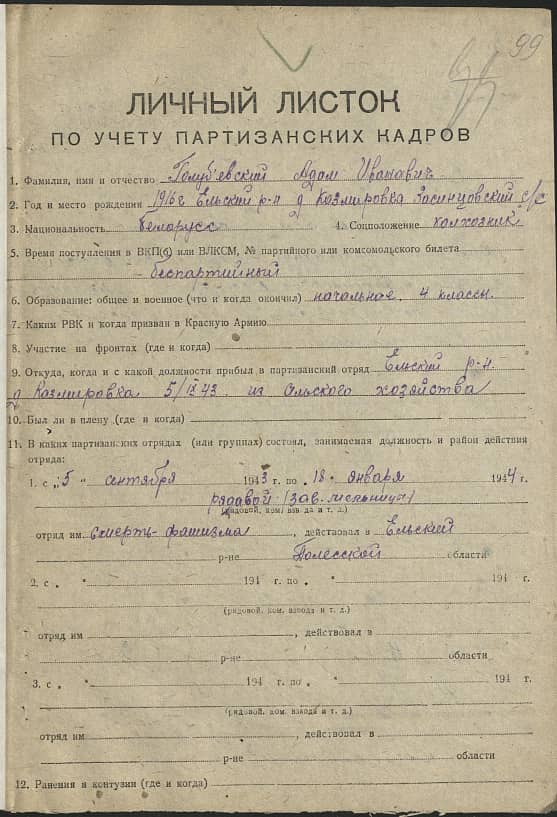 99
ЛИЧНЫЙ ЛИСТОК
ПО УЧЕТУ ПАРТИЗАНСКИХ КАДРОВ
1. Фамилия, имя и отчество Голубевский Адам Иванавич
2. Год и место рождения 1916г Ельский р-н д Казмировка Засинцовский с/с
3. Национальность беларусс 4. Соцположение колхозник
5. Время поступления в ВКП(б) или ВЛКСМ, № партийного или комсомольского билета
беспартийный
6. Образование: общее и военное (что и когда окончил) начальное 4 классы.
7. Каким РВК и когда призван в Красную Армию
8. Участие на фронтах (где и когда)
9. Откуда, когда и с какой должности прибыл в партизанский отряд Ельский р-н.
д Казмировка 5/IX 43. из сельского хозяйства
10. Был ли в плену (где и когда)
11. В каких партизанских отрядах (или группах) состоял, занимаемая должность и район действия
отряда:
1. с „5" сентября 1943 г. по „18" января 1944 г.
рядавой (зав. мельницы)
(рядовой, ком. взвода и т. д.)
отряд им Смерть-фашизма, действовал в Ельский
р-не Полесской области
2. с „ " 194 г. по „ " 194 г.
(рядовой, ком. взвода и т. д.)
отряд им , действовал в
р-не области
3. с „ " 194 г. по „ " 194 г.
(рядовой, ком. взвода и т. д.)
отряд им , действовал в
р-не области
12. Ранения и контузии (где и когда)